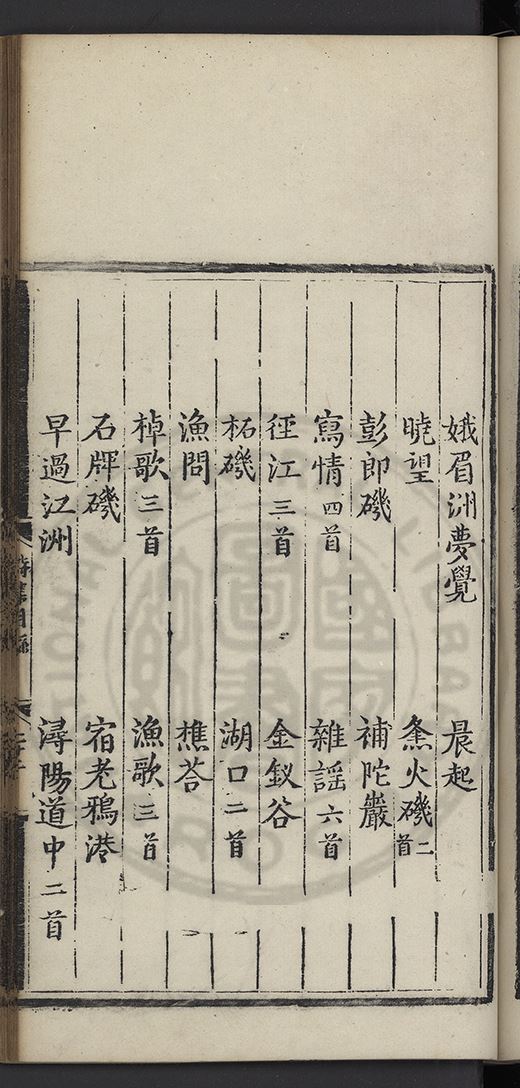 娥眉洲夢覺 晨起
曉望 㷅火磯二首
彭郎磯 補陀巖
寫情四首 雜謡六首
徑江三首 金釵谷
柘磯 湖口二首
漁問 樵荅
棹歌三首 漁歌三首
石牌磯 宿老鴉港
早過江洲 潯陽道中二首